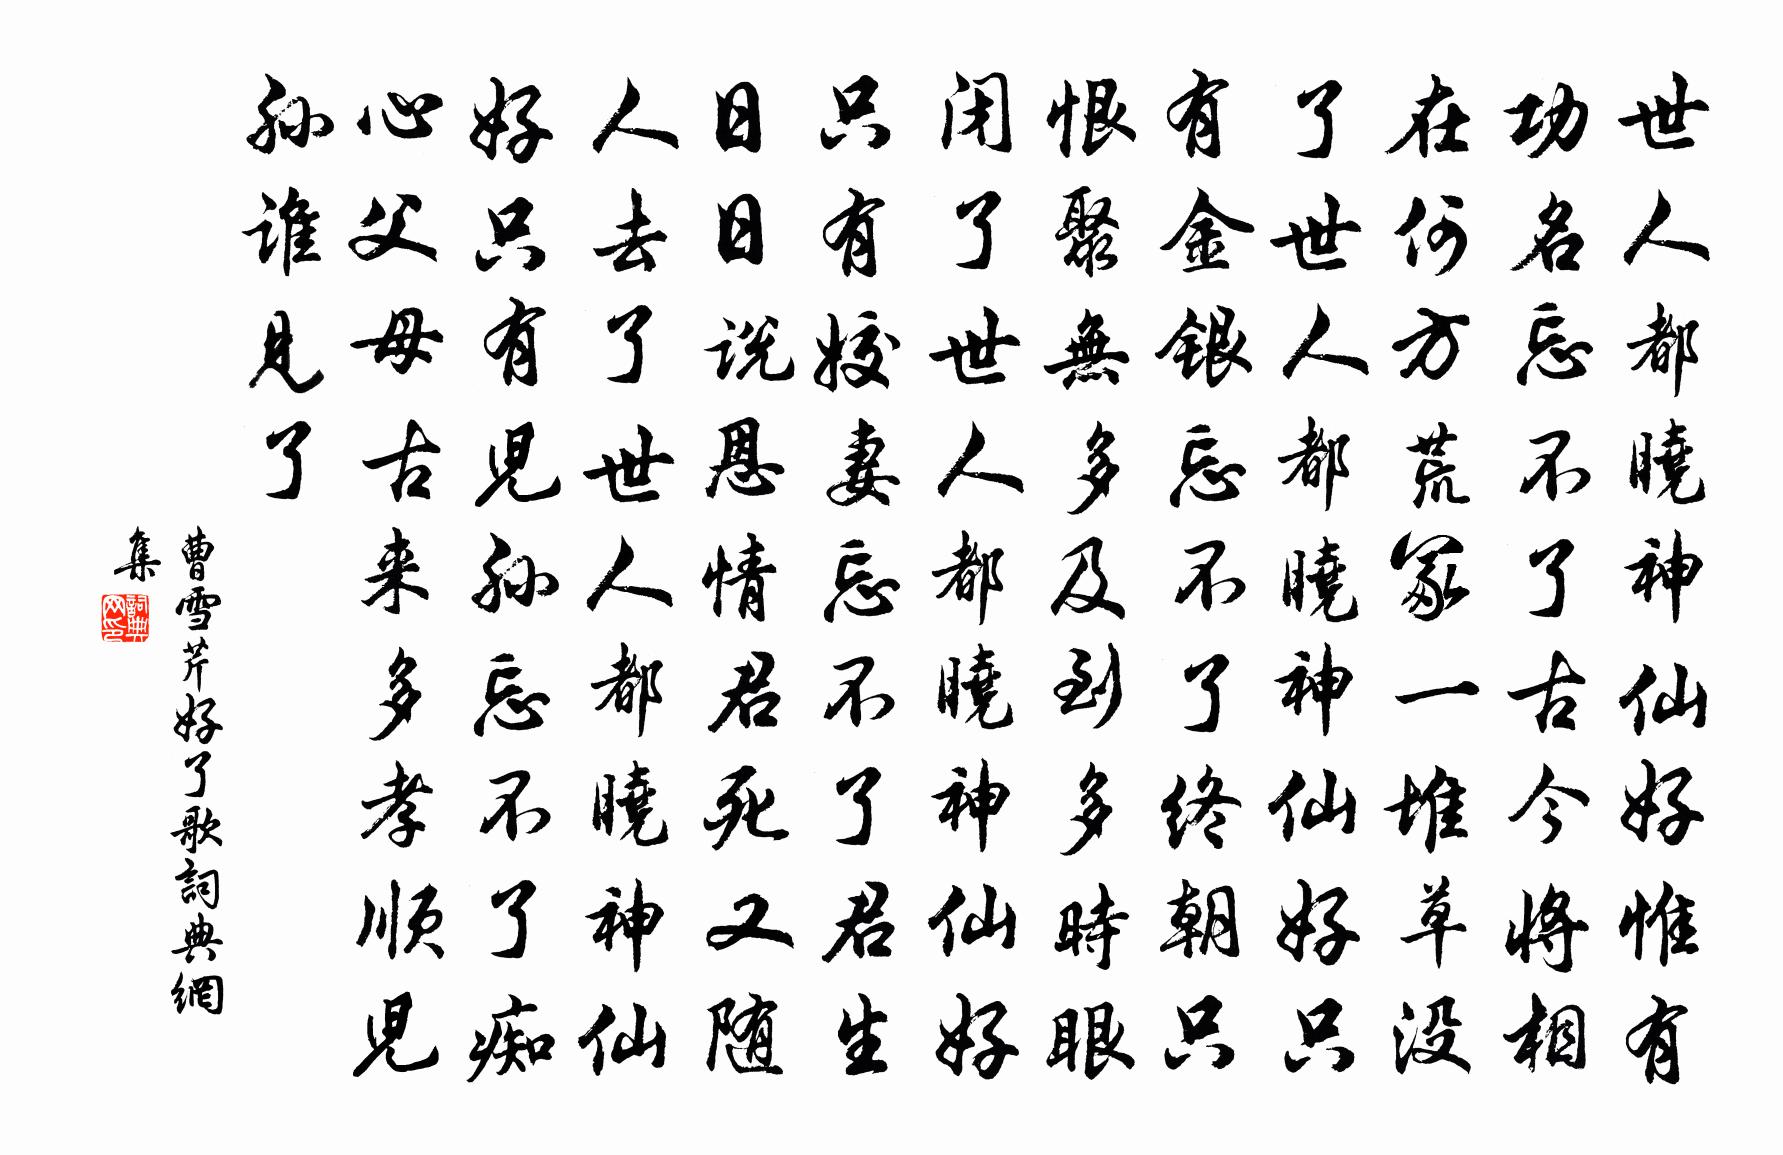 世人都曉神仙好惟有
功名忘不了古今将相
在何方荒冢一堆草没
了世人都曉神仙好只
有金银忘不了终朝只
恨聚無多及到多時眼
闭了世人都曉神仙好
只有姣妻忘不了君生
日日说恩情君死又随
人去了世人都曉神仙
好只有児孙忘不了痴
心父母古来多孝顺児
孙谁见了
曹雪芹好了歌詞典網
集
詞典
网印